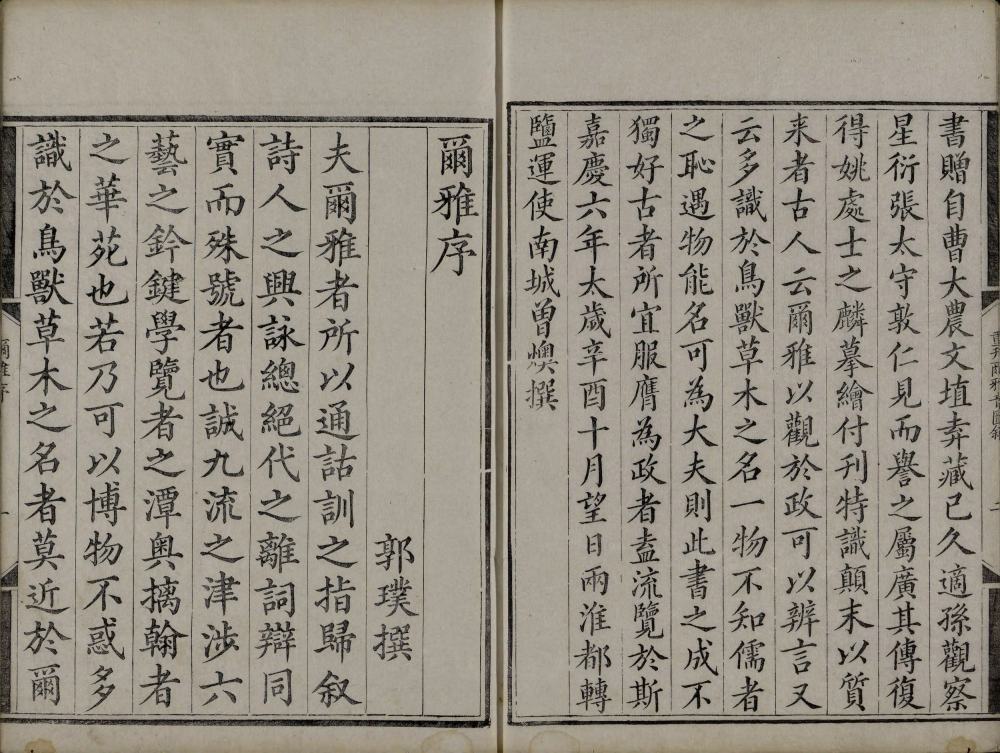 書贈自曹大農文埴弆藏已久適孫觀察
星衍張太守敦仁見而譽之屬廣其傳復
得姚處士之麟摹繪付刊特識顛末以質
来者古人云爾雅以觀於政可以辨言又
云多識於鳥獸草木之名一物不知儒者
之恥遇物能名可為大夫則此書之成不
獨好古者所宜服膺為政者盍流覽於斯
嘉慶六年太歲辛酉十月望日兩淮都轉
鹽運使南城曾燠撰
爾雅序
郭璞撰
夫爾雅者所以通詁訓之指歸叙
詩人之興詠總絕代之離詞辯同
實而殊號者也誠九流之津涉六
藝之鈐鍵學覽者之潭奥摛翰者
之華苑也若乃可以博物不惑多
識於鳥獸草木之名者莫近於爾
爾雅序
一